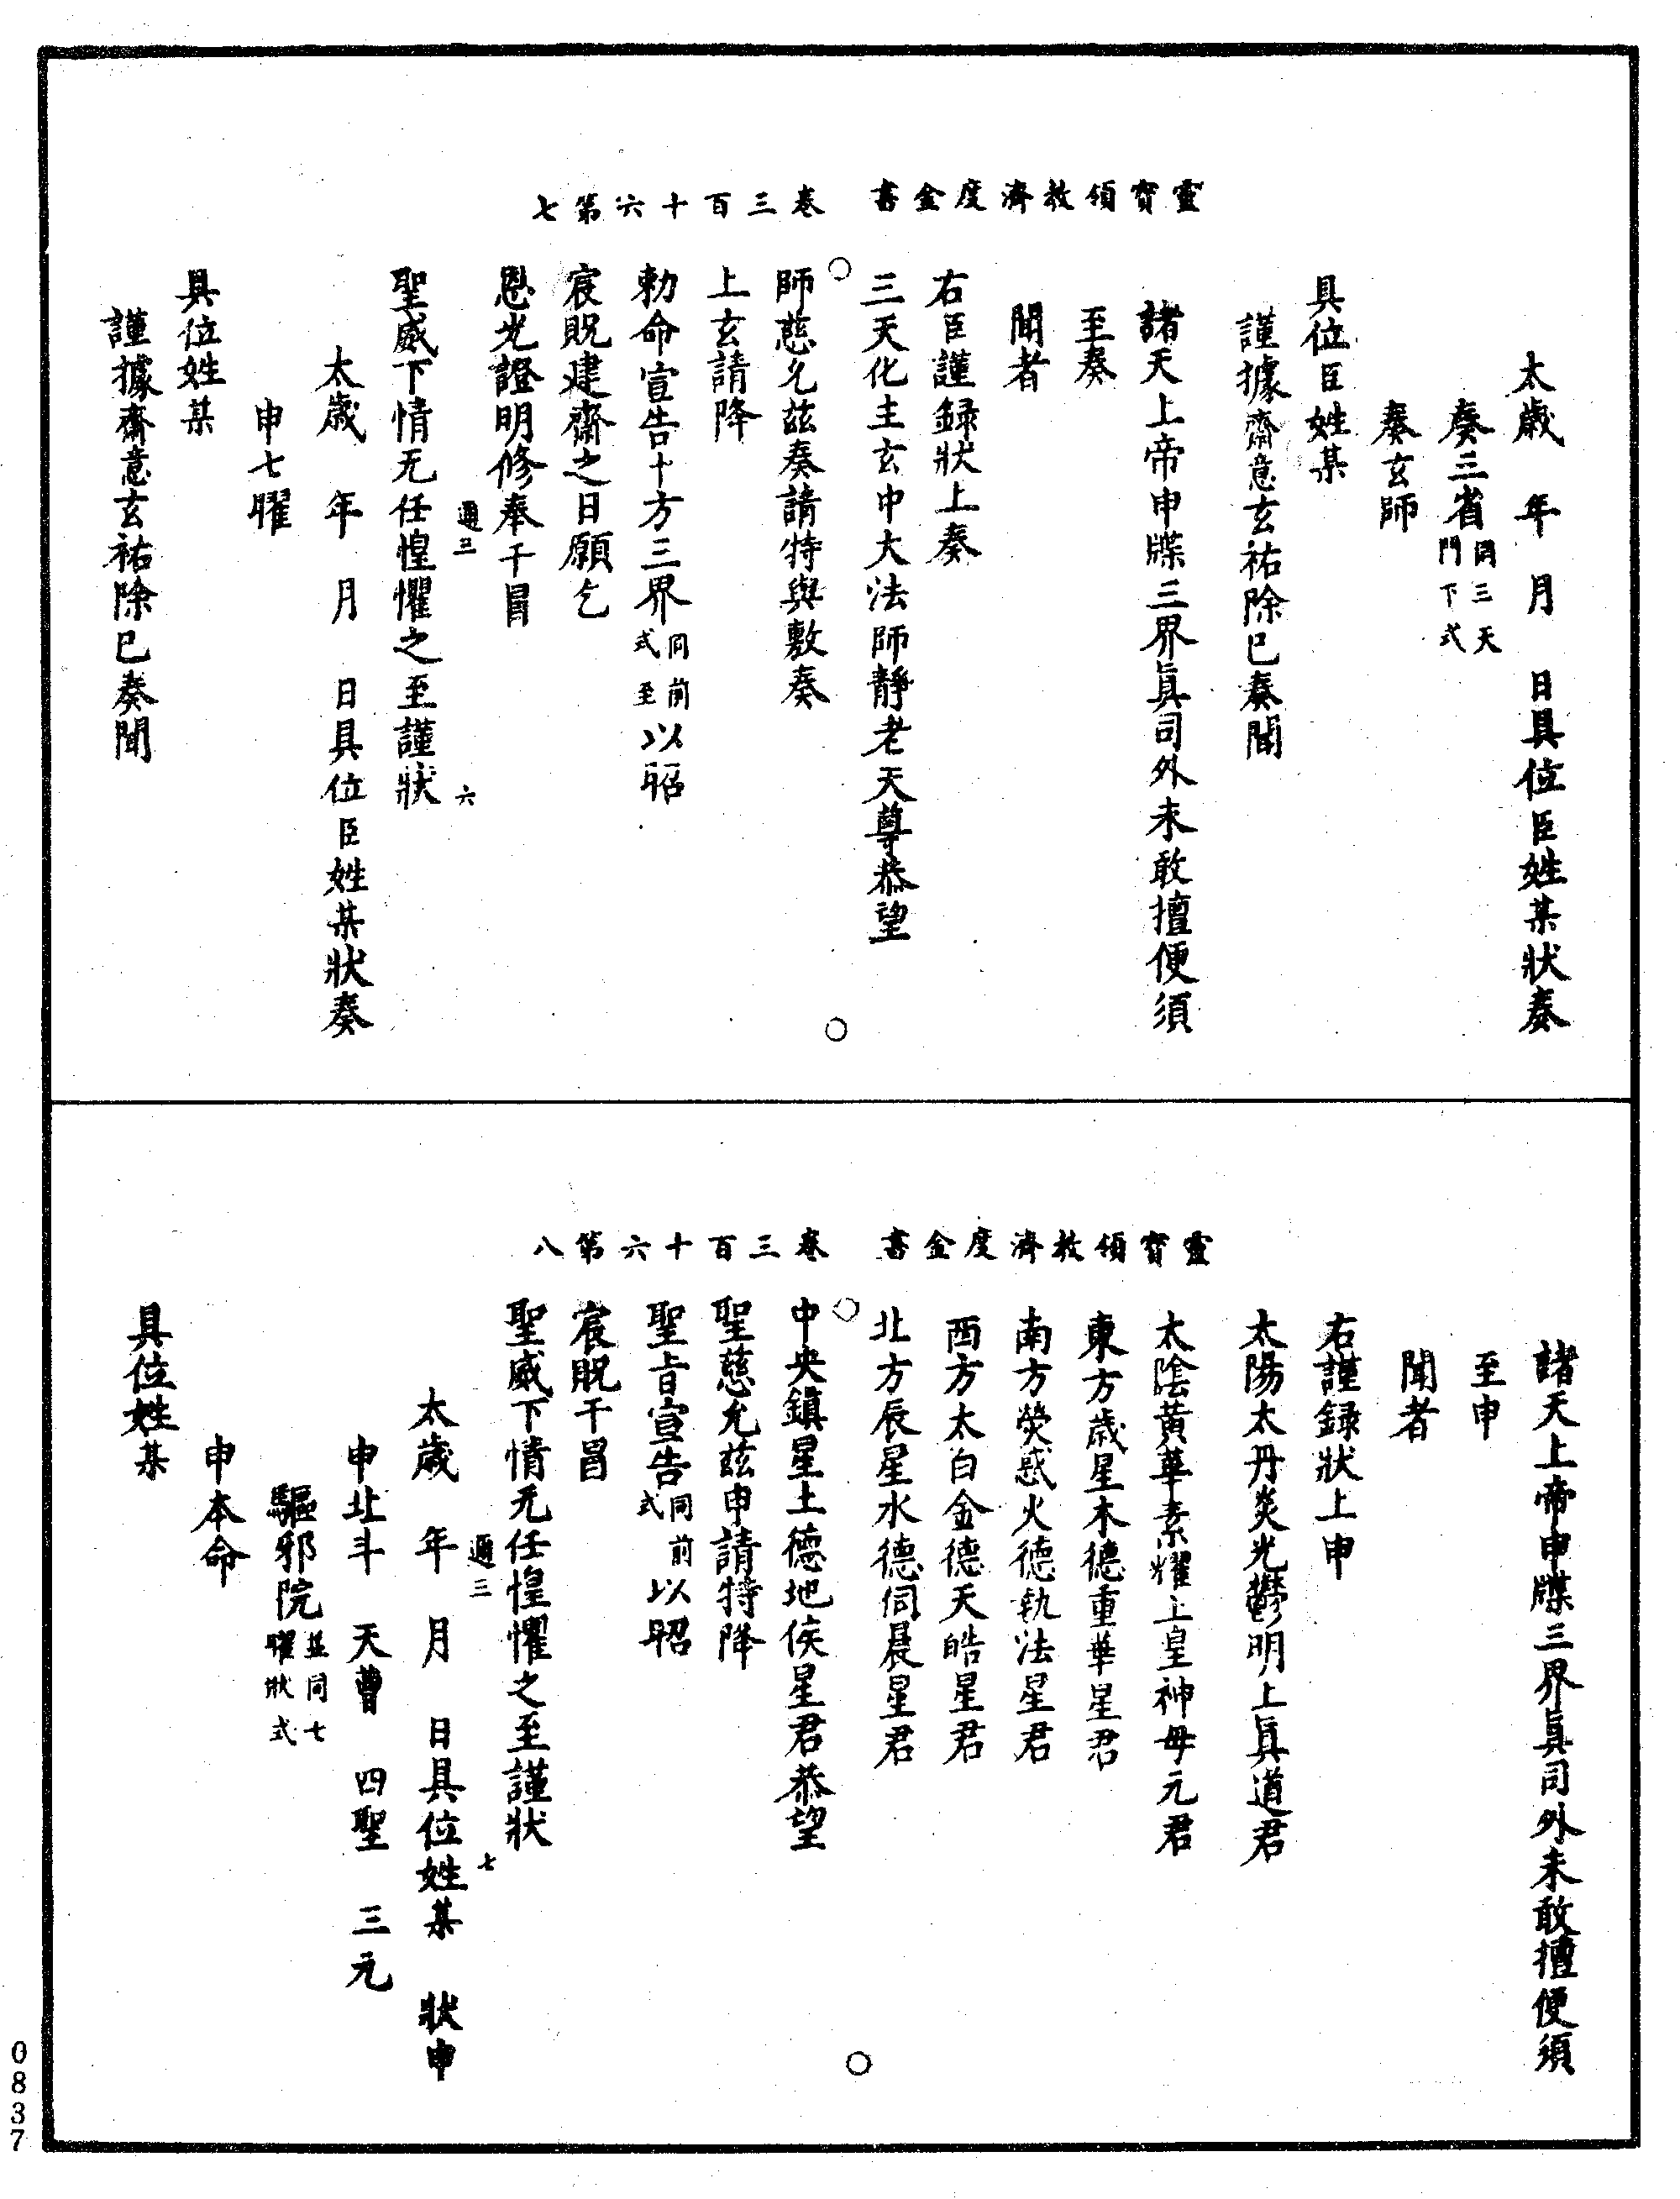 靈寶領教濟度金書　卷三百十六第七
太歲　年　月　日具位臣姓某狀奏
奏三省同三天門下式
奏玄師
具位臣姓某
謹據齋意玄祐除已奏聞
諸天上帝申牒三界眞司外未敢擅便須
至奏
聞者
右臣謹錄狀上奏
三天化主玄中大法師靜老天尊恭望
師慈允茲奏請特與敷奏
上玄請降
勅命宣告十方三界同前式至以昭
宸貺建齋之日願乞
恩光證明修奉干冒
聖威下情无任惶懼之至謹狀
通三　六
太歲　年　月　日具位臣姓某狀奏
申七曜
具位姓某
謹據齋意玄祐除已奏聞
靈寶領教濟度金書　卷三百十六第八
諸天上帝申牒三界眞司外未敢擅便須
至申
聞者
右謹錄狀上申
太陽太丹炎光鬱明上眞道君
太陰黃華素耀上皇神母元君
東方歲星木德重華星君
南方熒惑火德執法星君
西方太白金德天皓星君
北方辰星水德伺晨星君
中央鎮星土德地侯星君恭望
聖慈允茲申請特降
聖旨宣告同前式以昭
宸貺干冒
聖威下情无任惶懼之至謹狀
通三　七
太歲　年　月　日具位姓某　狀申
申北斗　天曹　四聖　三元
驅邪院並同七曜狀式
申本命
具位姓某
0837